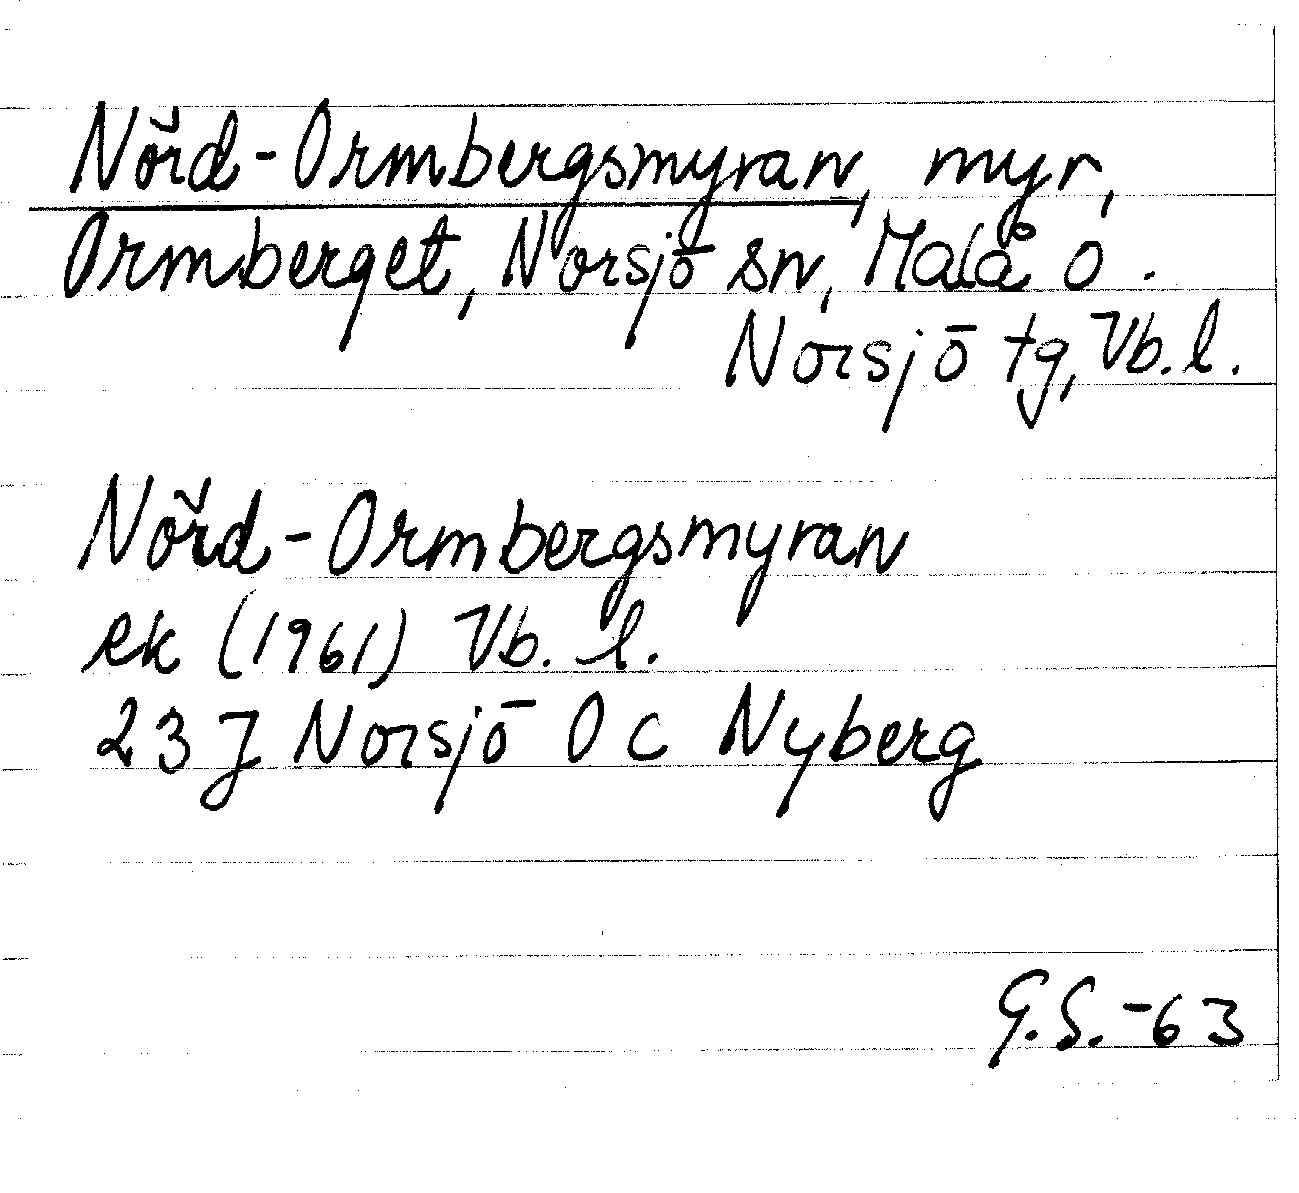 Nörd-Ormbergsmyran, myr,
Ormberget, Norsjö sn, Malå o.
Norsjö tg, Vb. l.
Nörd-Ormbergsmyran
ek (1961) Vb. l.
23 J Norsjö O c Nyberg
G.S.-63